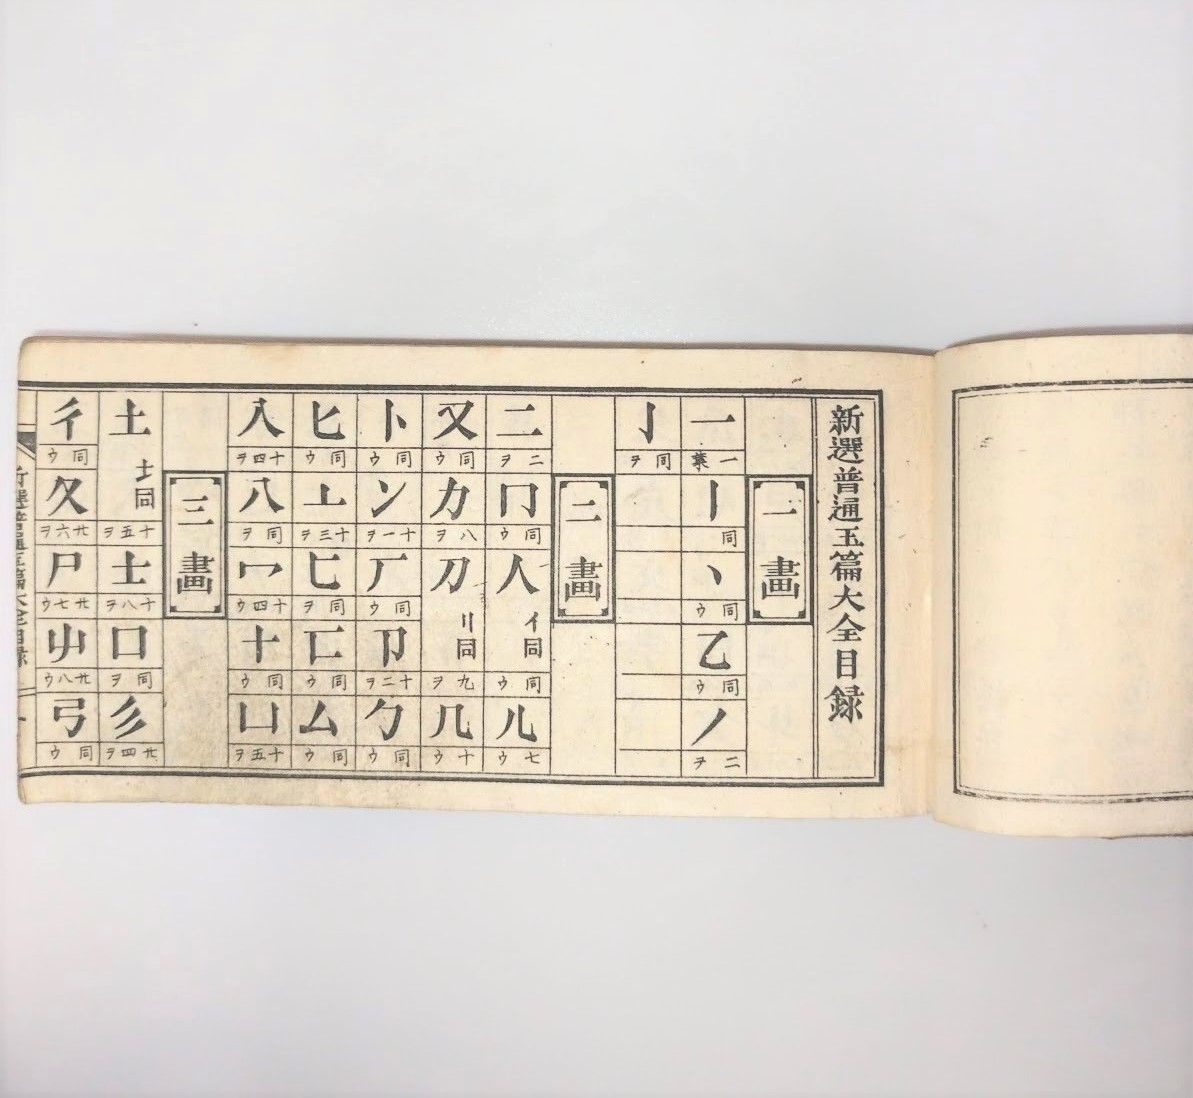 新選普通玉篇大全目録
一畫
一 一葉
丨 同
丶 同ウ
乙 同ウ
丿 二ヲ
亅 同ヲ
二畫
二 二ヲ
冂 同ウ
人 亻同 同ウ
儿 七ウ
又 同ウ
力 八ヲ
刀 刂同 九ヲ
几 十ウ
卜 同ウ
冫 十一ヲ
厂 同ウ
卩 十二ヲ
勹 同ウ
匕 同ウ
亠 十三ヲ
匸 同ヲ
匚 同ウ
厶 同ウ
入 十四ヲ
八 同ヲ
冖 十四ウ
十 同ウ
凵 十五ヲ
三畫
土 士同 十五ヲ
士 十八ヲ
口 同ヲ
彡 廿四ヲ
彳 同ウ
夂 廿六ヲ
尸 廿七ウ
屮 廿八ウ
弓 同ウ
新選普通玉篇大全目録